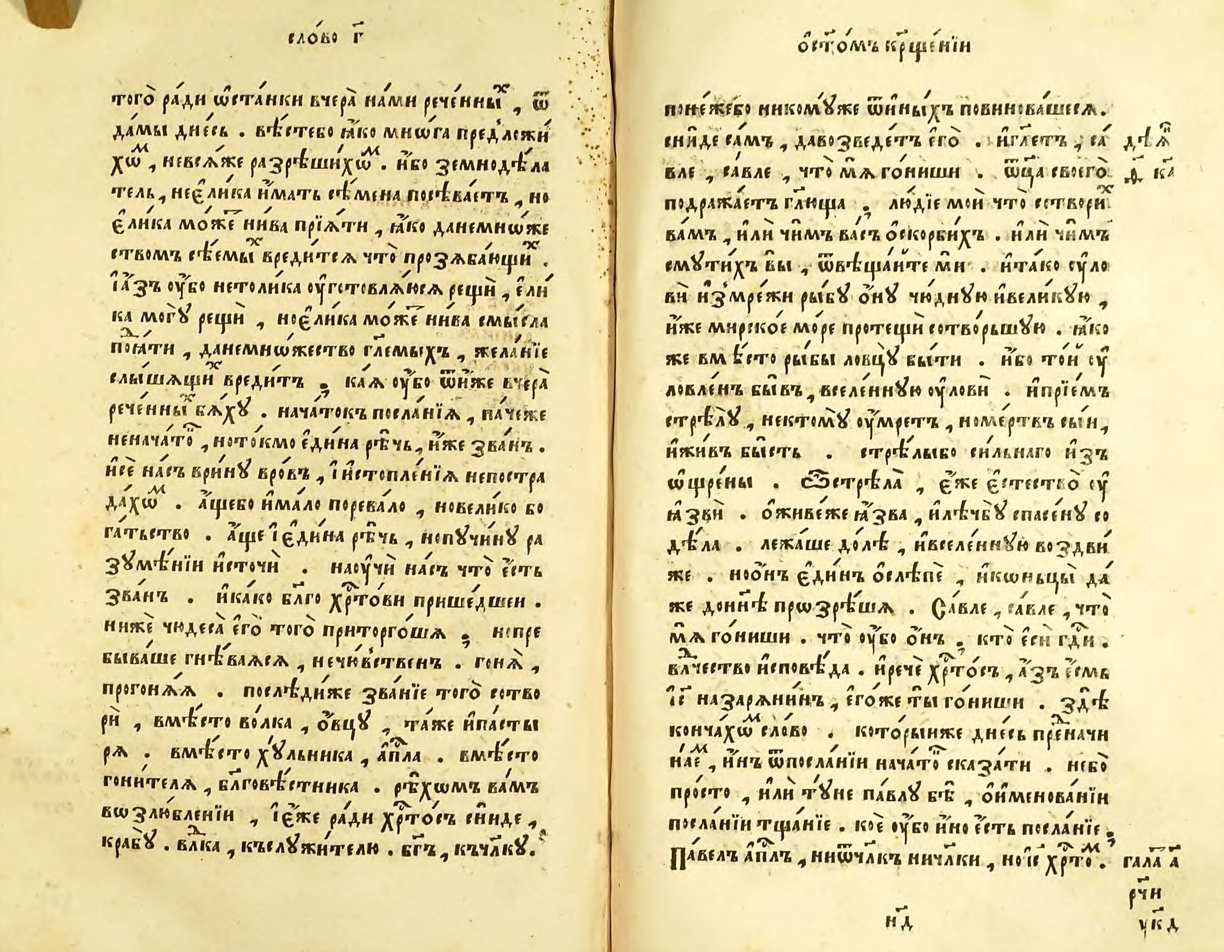 сло́во г҃
того̀ ра́ди ѡ҆ста́нки вчера̀ на́ми рече́нныⷯ, ѿ
да́мы дне́сь. вѣ́стебо ꙗ҆́ко мнѡ́га пред̾ложи́
хѡⷨ, невсѧ́же разрѣши́хѡⷨ. и҆́бо земнодѣ́ла
тель, неє҆ли́ка и҆́мать сѣ́мена посѣва́етъ, но
є҆ли́ка мо́жеⷮ ни́ва прїѧ́ти, ꙗ҆́ко данемнѡ́же
ствомъ сѣ́емыⷯ вреди́тсѧ что̀ прозѧба́ющиⷯ.
і҆а҆́зъ ᲂу҆́бо нето́лика ᲂу҆гото́влѧюсѧ рещѝ, є҆ли́
ка могꙋ̀ рещѝ, ноє҆ли́ка мо́жеⷮ ни́ва смы́сла
поѧ́ти, данемнѡ́жество гл҃емыхъ, жела́нїе
слы́шѧщиⷯ вреди́тъ; ка́ѧ ᲂу҆́бо ѿни́же вчера̀
рече́нныⷯ бѧ́хꙋ. нача́токъ посла́нїѧ, па́чеже
неначатоⷦ,ното́кмо є҆ди́на рѣ́чь, и҆́же зва́нъ.
и҆сѐ на́съ ври́нꙋ вро́въ, і҆и҆стопле́нїѧ непостра
да́хѡⷨ. а҆́щебо и҆ма́ло порева́ло, новели́ко бо
га́тьство. а҆́ще і҆є҆ди́на рѣ́чь, нопꙋчи́нꙋ ра
зꙋмѣ́нїи и҆сточѝ. наᲂу҆чѝ на́съ что̀ є҆́сть
зва́нъ. и҆ка́ко бл҃го хрⷭ҇то́ви прише́дшеи.
ни́же чюдеса̀ є҆го̀ того̀ приторго́шѧ; нопре
быва́ше гнѣ́ваѧсѧ, нечю́вственъ. гонѧ̀,
прогонѧ́ѧ. послѣ́диже зва́нїе того̀ сотво
рѝ, вмѣ́сто во́лка, ѻ҆́вцꙋ, та́же и҆па́сты
рѧ. вмѣ́сто хꙋ́льника, а҆пⷭ҇ла. вмѣ́сто
гони́телѧ, бл҃говѣ́стника. рѣ́хѡмъ ва́мъ
вѡзлю́бленїи, і҆є҆́же ра́ди хрⷭ҇то́съ сни́де,
крабꙋ̀. влⷣка, къслꙋжи́телю. бг҃ъ, къчл҃кꙋ.
ѻ҆ст҃о́мъ крⷭ҇ще́нїи
поне́жебо никомꙋ́же ѿи́ныхъ повинова́шесѧ.
сни́де са́мъ, давозведе́тъ є҆го̀. и҆гл҃етъ, са́
вле, са́вле, что̀ мѧ̀ го́ниши. ѿц҃а своего̀
подража́етъ гл҃юща; лю́дїе моѝ что̀ сотвори́ⷯ
ва́мъ, и҆лѝ чи́мъ ва́съ ѻ҆скорби́хъ. и҆лѝ чи́мъ
смꙋти́хъ вы̀, ѿвѣща́ите мѝ. и҆та́ко ᲂу҆ло
вѝ и҆змре́жи ры́бꙋ ѻ҆́нꙋ чю́днꙋю и҆вели́кꙋю,
и҆́же мирско́е мо́ре протещѝ сотво́рьшꙋю. ꙗ҆́ко
же вмѣ́сто ры́бы ловцꙋ̀ бы́ти. и҆́бо то́й ᲂу҆
ло́вленъ бы́въ, вселе́ннꙋю ᲂу҆ловѝ. и҆прїе́мъ
стрѣлꙋ̀, нектомꙋ̀ ᲂу҆́мретъ, номе́ртвъ сы́и,
и҆жи́въ бы́сть. стрѣ́лыбо си́льнаго и҆зъ
ѡ҆щре́ны. ѽстрѣла̀, є҆́же є҆стество̀ ᲂу҆
ꙗ҆звѝ. ѻ҆живе́же ꙗ҆́зва, и҆лѣчбꙋ̀ спасе́нꙋ со
дѣ́ла. лежа́ше до́лѣ, и҆вселе́ннꙋю воздви́
же. ноѻ҆́нъ є҆ди́нъ ѻ҆слѣ́пе, и҆кѡньцы̀ да́
же дони́нѣ прѡзрѣ́шѧ. Са́вле, са́вле, что̀
мѧ̀ го́ниши. что̀ ᲂу҆́бо ѻ҆́нъ; кто̀ є҆сѝ гдⷭ҇и.
влⷣчество и҆сповѣ́да. и҆речѐ хрⷭ҇то́съ, а҆́зъ є҆́смь
і҆с҃ назарѧни́нъ, є҆го́же ты̀ го́ниши. здѣ̀
конча́хѡⷨ сло́во. кото́рыиже дне́сь преⷣначи
на́еⷨ, и҆́нъ ѿпосла́нїи нача́тоⷦ сказа́ти. небо̀
про́сто, и҆лѝ тꙋ́не па́влꙋ бѣ̀, ѻ҆и҆менова́нїи
посла́нїи тща́нїе. ко́е ᲂу҆́бо и҆́но є҆́сть посла́нїе;
Па́велъ а҆пⷭ҇лъ, ниѿчл҃къ ничл҃ки, ноі҆с҃ хрⷭ҇то́ⷨ.
дѣѧ҃
д҃ ка҃
гала҃ а҃
рч҃и
ук҃д
н҃д